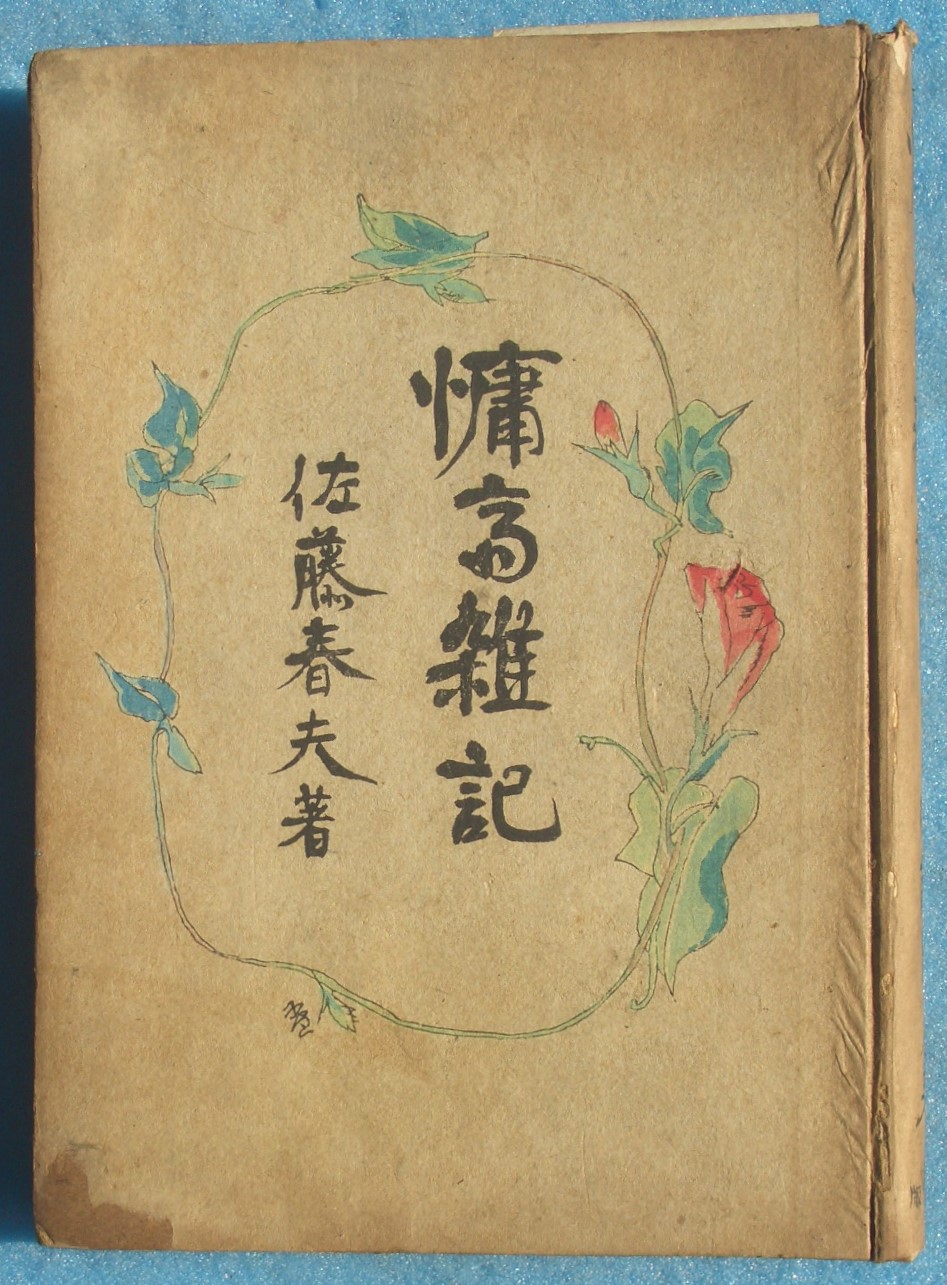 慵斎雑記
佐藤春夫著